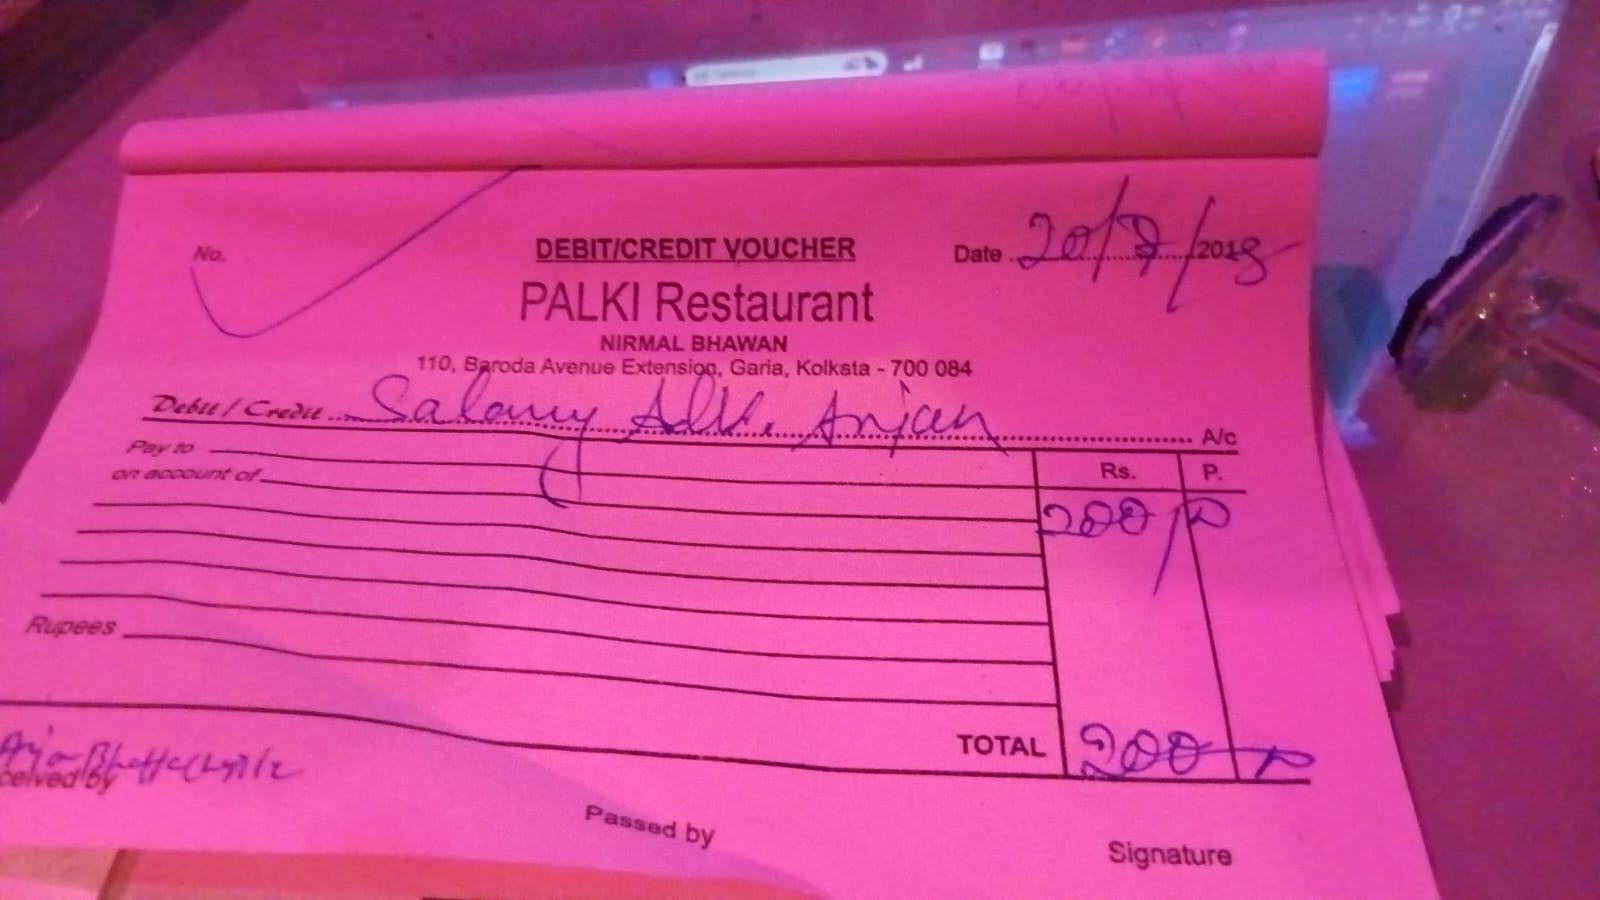 No.
DEBIT/CREDIT VOUCHER
Date 20/7/2018
PALKI Restaurant
NIRMAL BHAWAN
110, Baroda Avenue Extension, Garia, Kolkata - 700 084
Debit / Credit Salary Adv. Anjan A/c
Pay to
on account of
Rs. P.
200/
Rupees
TOTAL 200
Anjan Bhattacharjee
ceived by
Passed by
Signature